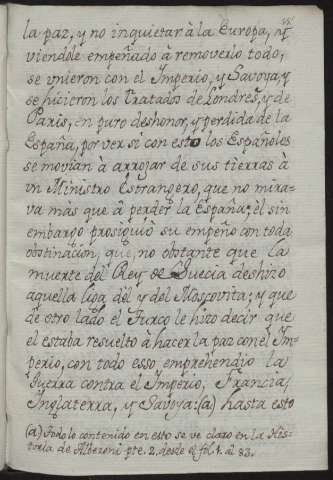 la paz, y no inquietar à la Europa, y
viendole empeñado à removerlo todo,
se vnieron con el Imperio, y Savoya, y
se hicieron los Tratados de Londres, y de
Paris, en puro deshonor, y perdida de la
España, por ver si con esto los Españoles
se movian à arrojar de sus tierras à
vn Ministro Estrangero, que no mira-
va más que à perder la España; èl sin
embargo prosiguió su empeño con toda
obstinacion, que, no obstante que la
muerte del Rey de Suecia deshizo
aquella liga dél y del Moscovita; y que
de otro lado el Turco le hizo decir que
el estaba resuelto à hacer la paz con el Im-
perio, con todo esso emprehendio la
Guerra contra el Imperio, Francia,
Inglaterra, y Savoya: (a) hasta esto
(a) Todo lo contenido en esto se ve claro en la His-
toria de Alberoni pte. 2. desde el fol. 1. al 83.